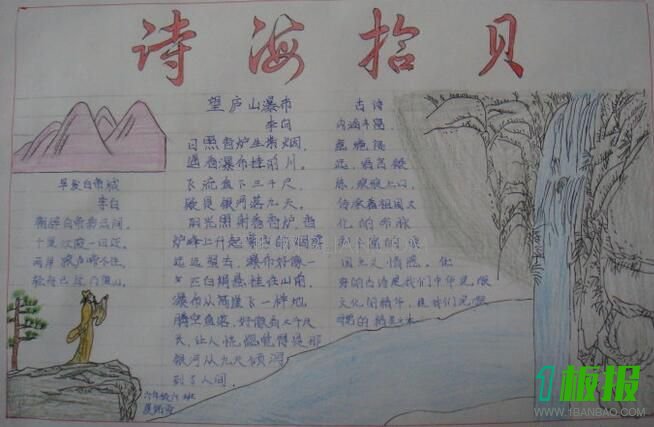 诗海拾贝
早发白帝城
李白
朝辞白帝彩云间,
千里江陵一日还。
两岸猿声啼不住,
轻舟已过万重山。
望庐山瀑布
李白
日照香炉生紫烟,
遥看瀑布挂前川。
飞流直下三千尺,
疑是银河落九天。
阳光照射香炉,香
炉峰上升起紫色的烟雾
远远望去,瀑布好像一
匹白绸悬挂在山前,
瀑布从高崖飞一样地
腾空直落,好像有三千尺
长,让人恍惚觉得是那
银河从九天倾泻
到了人间。
古诗
内涵丰富,
意境深
远,语言锻
炼,琅琅上口,
传承着祖国文
化的命脉
国主义情愿。
的古诗是我们中华民族
文化的精华,是我们民族
六年级 班
1板报
WWW.1BANBAO.COM